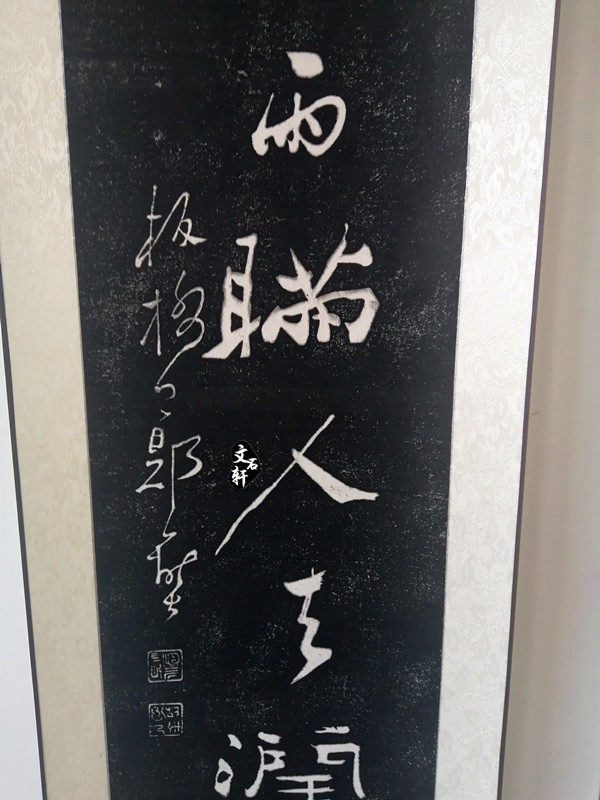 雨瞞人去潤
板橋鄭燮
文石轩